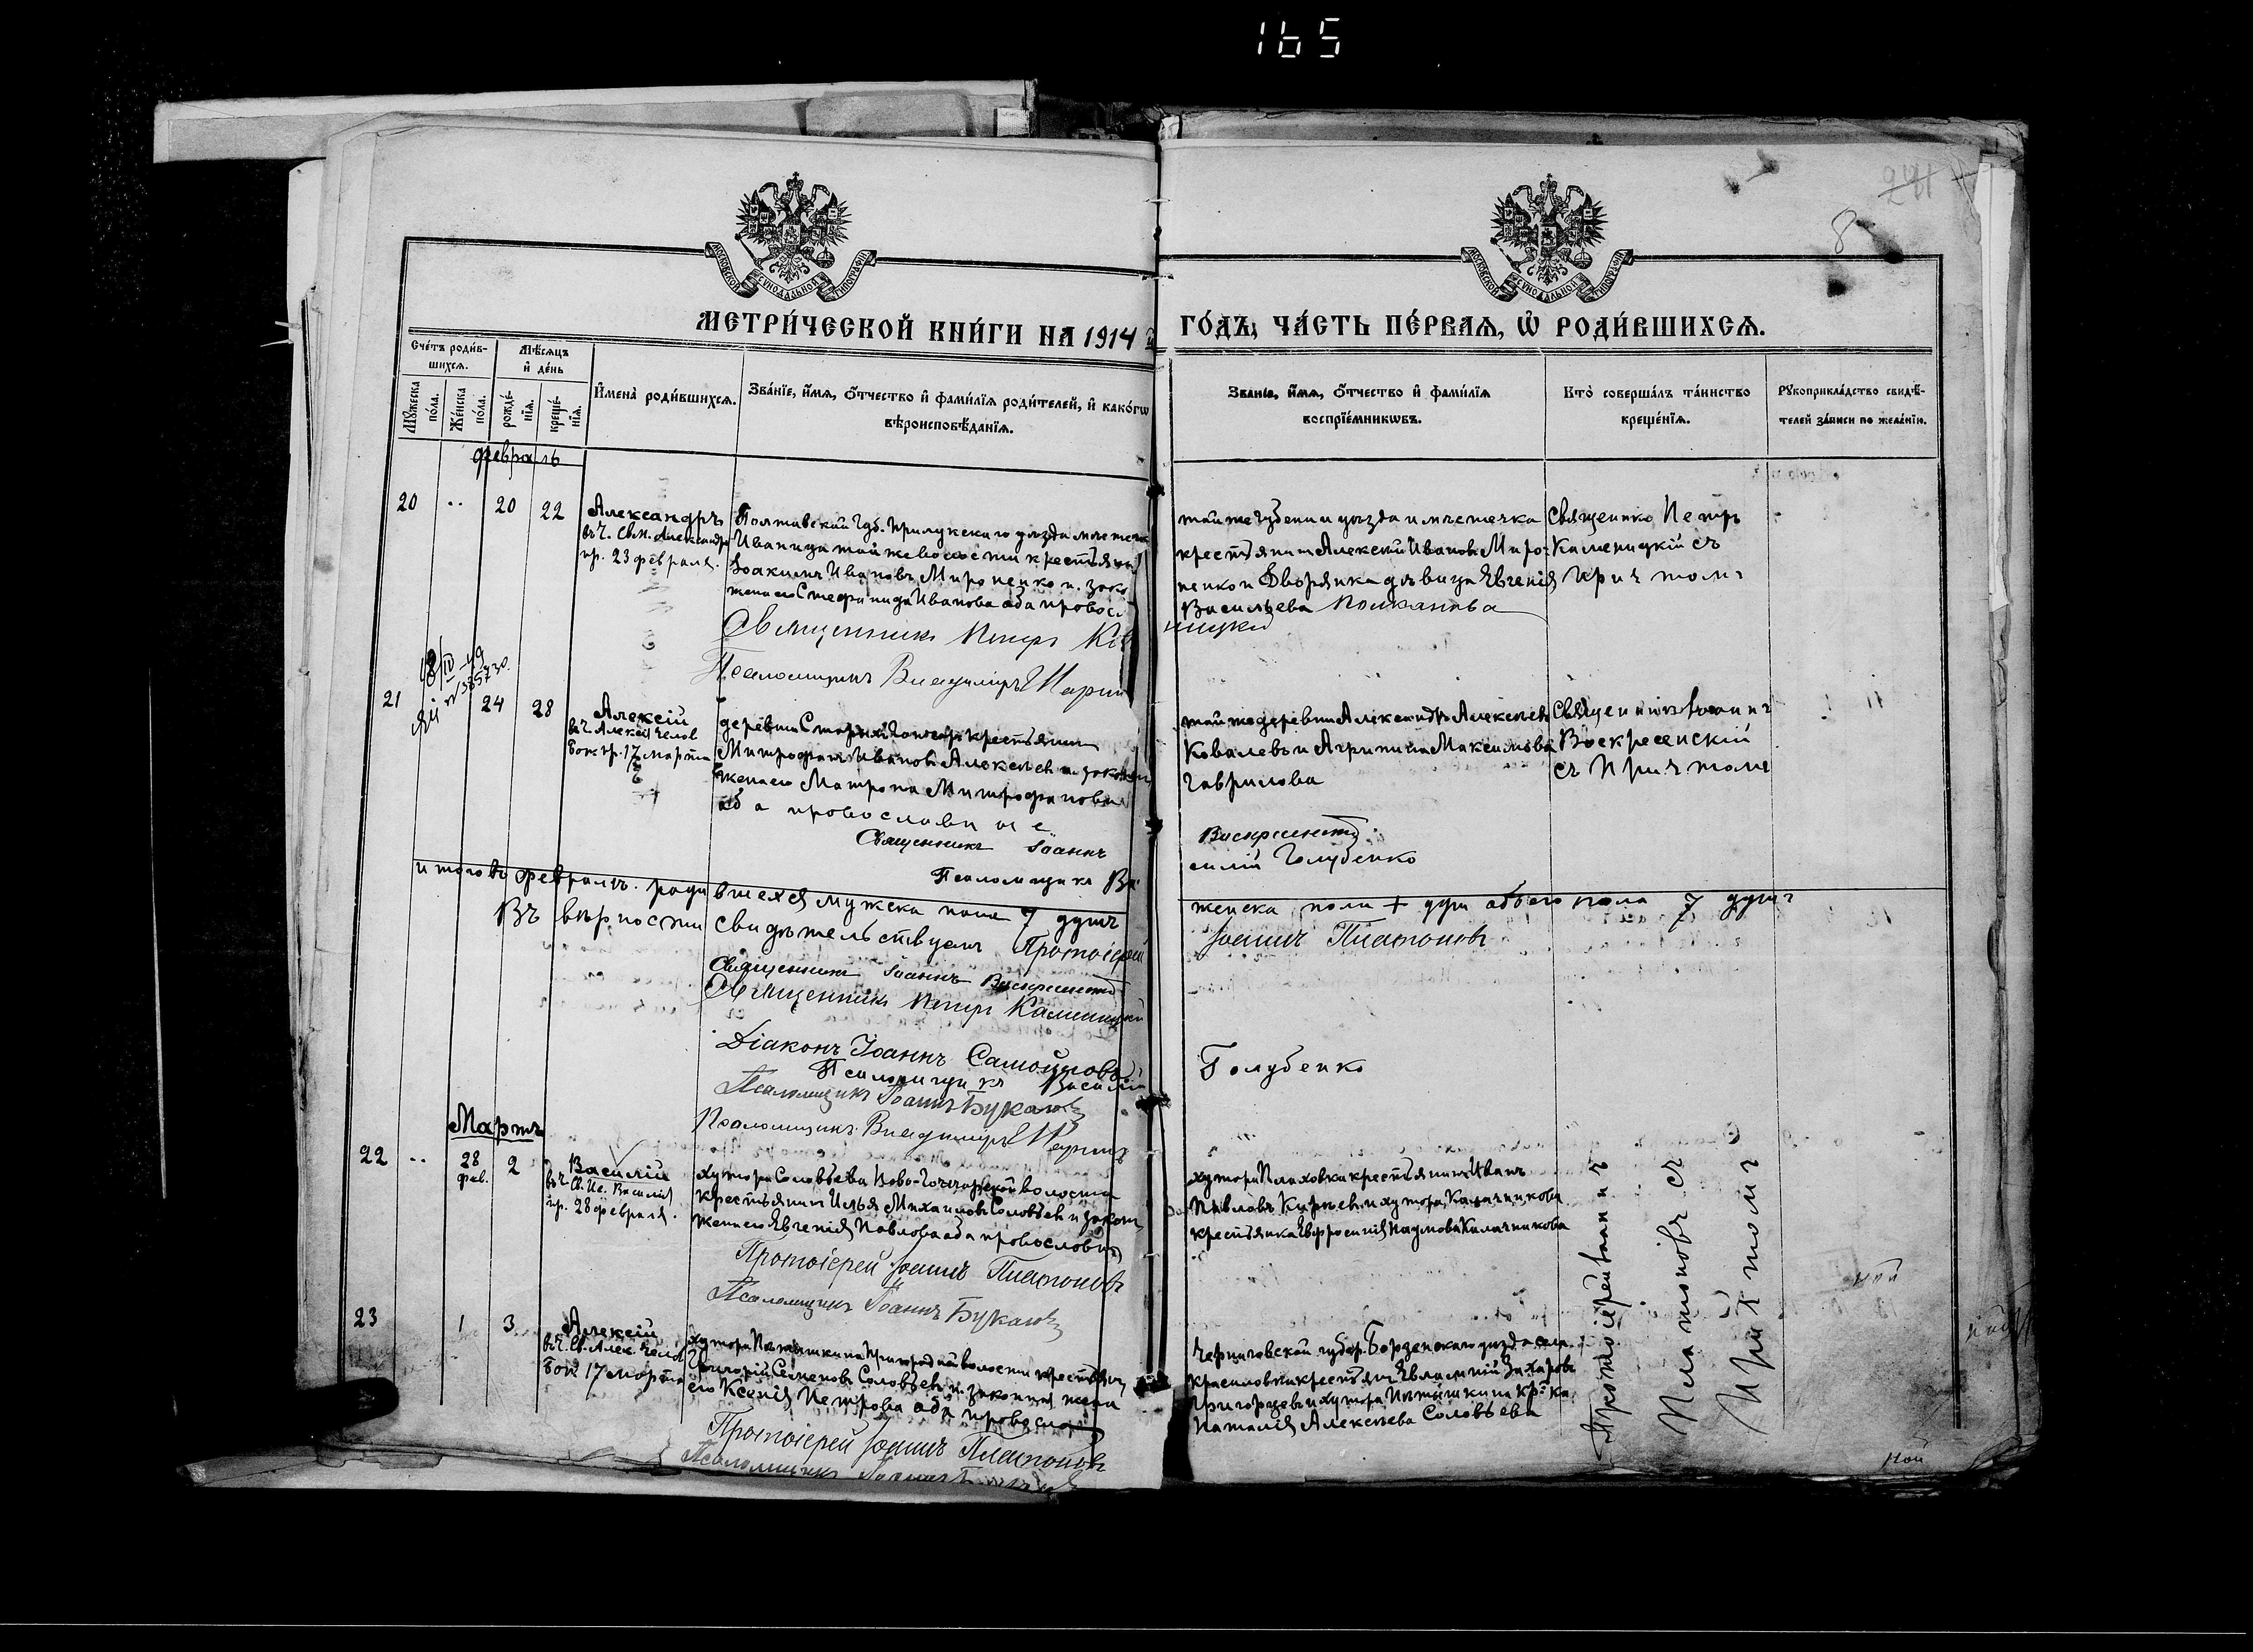 165
241
8
МОСКОВСКОЙ СѴНОДАЛЬНОЙ ТИПОГРАФІИ
МОСКОВСКОЙ СѴНОДАЛЬНОЙ ТИПОГРАФІИ
МЕТРИ́ЧЕСКОЙ КНИ́ГИ НА 1914 ГО́ДЪ, ЧА́СТЬ ПЕ́РВАЯ, Ѽ РОДИ́ВШИХСЯ.
Сче́тъ роди́в-
шихся.
Мѣ́сяцъ
и҆ де́нь
Мꙋ́жеска
по́ла.
Же́нска
по́ла.
рожде́-
нїя.
креще́-
нїя.
И҆мена̀ роди́вшихся.
Зва́нїе, и҆́мя, ѻ҆́тчество и҆ фами́лїя роди́телей, и҆ како́гѡ
вѣроисповѣ́данїя.
Зва́нїе, и҆́мя, ѻ҆́тчество и҆ фами́лїя
воспрїе́мникѡвъ.
Кто̀ соверша́лъ та́инство
креще́нїя.
Рꙋкоприкла́дство свидѣ́-
телей за́писи по жела́нїю.
февраль
20 .. 20 22
Александръ
въ ч. Св. М. Александра
пр. 23 февраля.
Полтавской губ. Прилукскаго уѣзда мѣстеч
Иваница той же волости крестьянин
Іоакимъ Ивановъ Мироненко и зако
жена его Стефанида Иванова оба правос
Священникъ Петръ Каменицкій
Псаломщикъ Владиміръ
той же губерніи уѣзда и мѣстечка
крестьянинъ Алексѣй Иванов Миро-
ненко и Дворянка дѣвица Евгенія
Васильева
Священикъ Петръ
Каменицкій съ
причтомъ
21 24 28
18/IV-49
ЯЙ № 385730
Алексій
въ ч. Алексѣя Челов
Бож. пр. 17 марта
деревни Старый Гончаръ крестьянин
Митрофанъ Иванов Алексѣев и закон
жена его Матрона Митрофанова
оба православные
Священникъ Іоаннъ Воскресенскій
Псаломщикъ Василій Голубенко
той же деревни Александръ Алексѣев
Ковалевъ и Агрипина Максимова
Гаврилова
Священникъ Іоаннъ
Воскресенскій
съ причтомъ
Итого въ февралѣ родившехся мужска пола 7 душъ женска пола + душ обоего пола 7 душъ
Въ вѣрности свидѣтельствуемъ Протоіерей Іоаннъ Платоновъ
Священникъ Іоаннъ Воскресенскій
Священникъ Петръ Каменицкій
Діаконъ Іоаннъ Самойловъ
Псаломщикъ Василій Голубенко
Псаломщикъ Іоаннъ Букаловъ
Псаломщикъ Владиміръ
Мартъ
22 .. 28 фев. 2
Василій
въ ч. Св. Ис. Василія
пр. 28 февраля.
хутора Соловьева Ново-Гончарской волости
крестьянинъ Илья Михаиловъ Соловьев и закон
жена его Евгенія Павлова оба православн
Протоіерей Іоаннъ Платоновъ
Псаломщикъ Іоаннъ Букаловъ
хутора Плаховка крестьянинъ Иванъ
Павловъ Кирѣев и хутора Калачникова
крестьянка Евфросинія Наумова Калачникова
Протоіерей Іоаннъ
Платоновъ съ
причтомъ
23 1 3
Алексій
въ ч. Св. Алек. Челов
Бож. 17 марта
хутора Пятышкина Пригородней волости крестьян
Григорій Семеновъ Соловьев и законная жена
его Ксенія Петрова оба правосла
Протоіерей Іоаннъ Платоновъ
Псаломщикъ Іоаннъ
Черниговской губер. Борзенскаго уѣзда села
Красиловки крестьян Евлампій Захаровъ
Григорцевъ и хутора Пятышкина кр-ка
Наталія Алексѣева Соловьева
ной